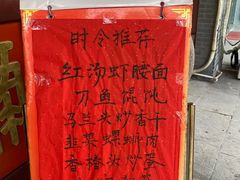 时令推荐
红汤虾腰面
刀鱼馄饨
马兰头炒香干
韭菜螺蛳肉
香椿头炒蛋